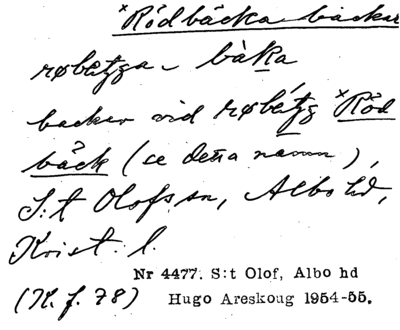 *Rödbäcka backar
røbɛtzga - bàka
backar vid røbɛ́tzg *Röd
bäck (se detta namn),
S:t Olofs sn, Albo hd,
Krist. l.
Nr 4477. S:t Olof, Albo hd
(K. f. 78) Hugo Areskoug 1954-55.